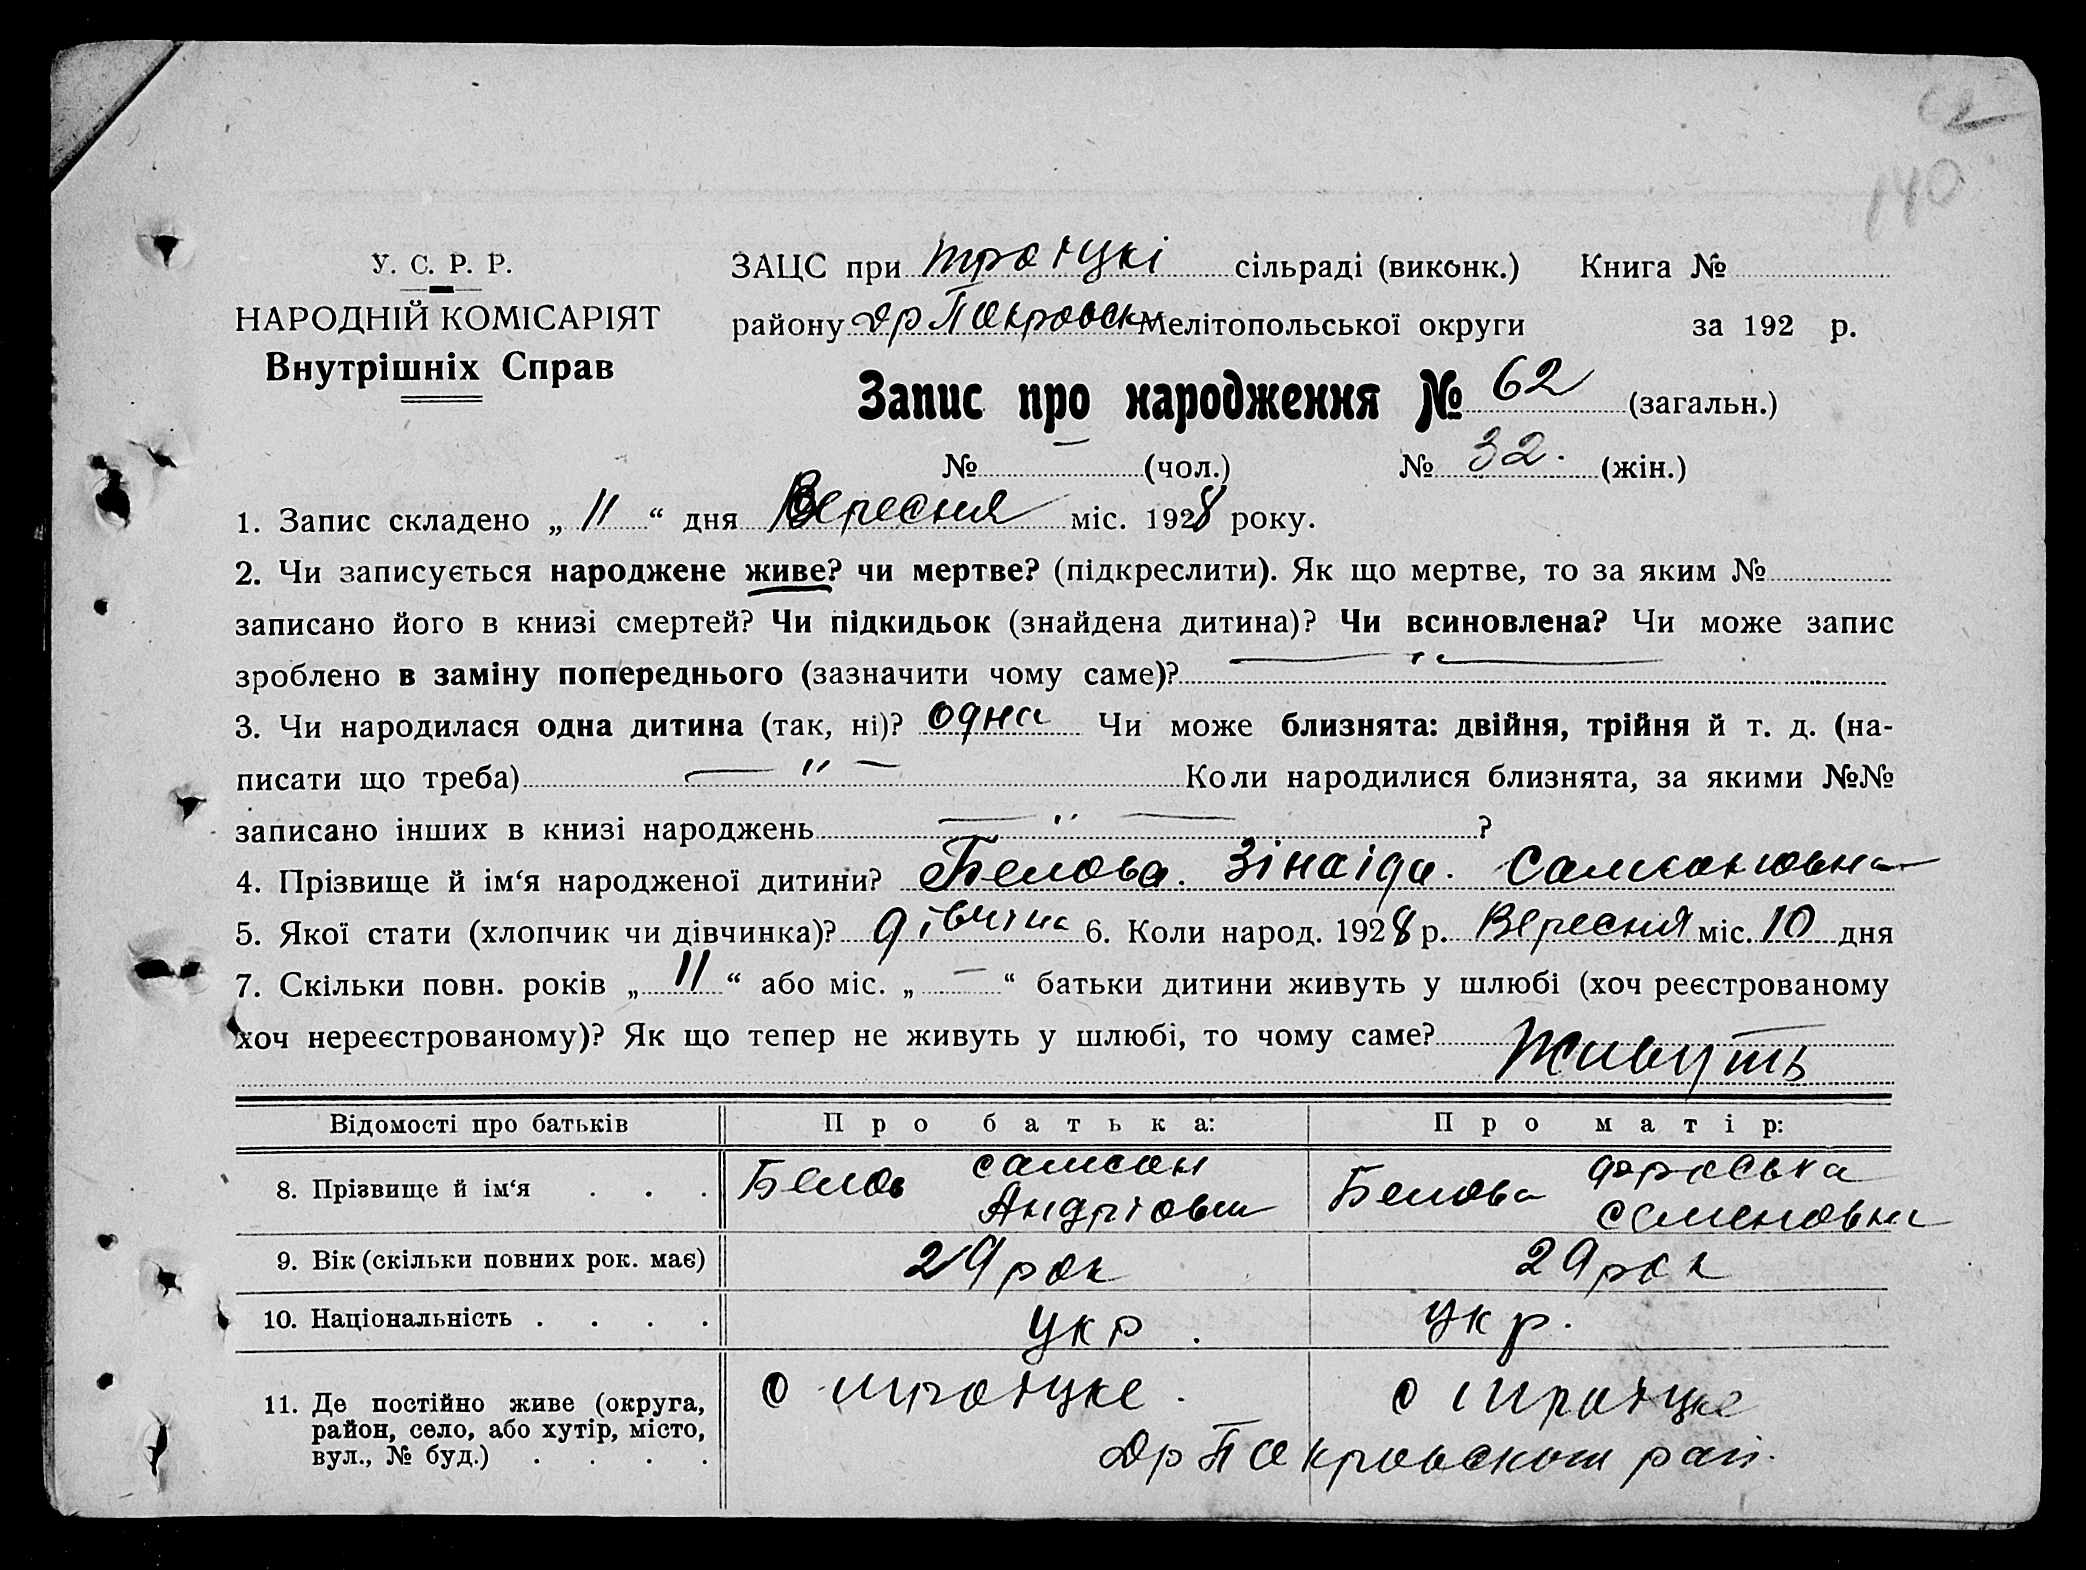 62
140
У. С. Р. Р.
НАРОДНІЙ КОМІСАРІЯТ
Внутрішніх Справ
ЗАЦС при Троїцкі сільраді (виконк.) Книга №
району Др Покровск Мелітопольської округи за 192 р.
Запис про народження № 62 (загальн.)
№ — (чол.) № 32. (жін.)
1. Запис складено „ 11 “ дня Вересня міс. 1928 року.
2. Чи записується народжене живе? чи мертве? (підкреслити). Як що мертве, то за яким №
записано його в книзі смертей? Чи підкидьок (знайдена дитина)? Чи всиновлена? Чи може запис
зроблено в заміну попереднього (зазначити чому саме)? — „ —
3. Чи народилася одна дитина (так, ні)? одна Чи може близнята: двійня, трійня й т. д. (на-
писати що треба) — „ — Коли народилися близнята, за якими №№
записано інших в книзі народжень — „ — ?
4. Прізвище й ім‘я народженої дитини? Белова. Зінаіда. Самсоновна
5. Якої стати (хлопчик чи дівчинка)? дівчина 6. Коли народ. 1928 р. Вересня міс. 10 дня
7. Скільки повн. років „ 11 “ або міс. „ — “ батьки дитини живуть у шлюбі (хоч реєстрованому
хоч нереєстрованому)? Як що тепер не живуть у шлюбі, то чому саме? Живуть
Відомості про батьків Про батька: Про матір:
8. Прізвище й ім‘я . . . Белов Самсон Андріович Белова Фроська Семеновна
9. Вік (скільки повних рок. має) 29 рок 29 рок
10. Національність . . . . укр. укр.
11. Де постійно живе (округа, район, село, або хутір, місто, вул., № буд.) . . . . с Троїцке. с Троїцке
Др Покровського рай.